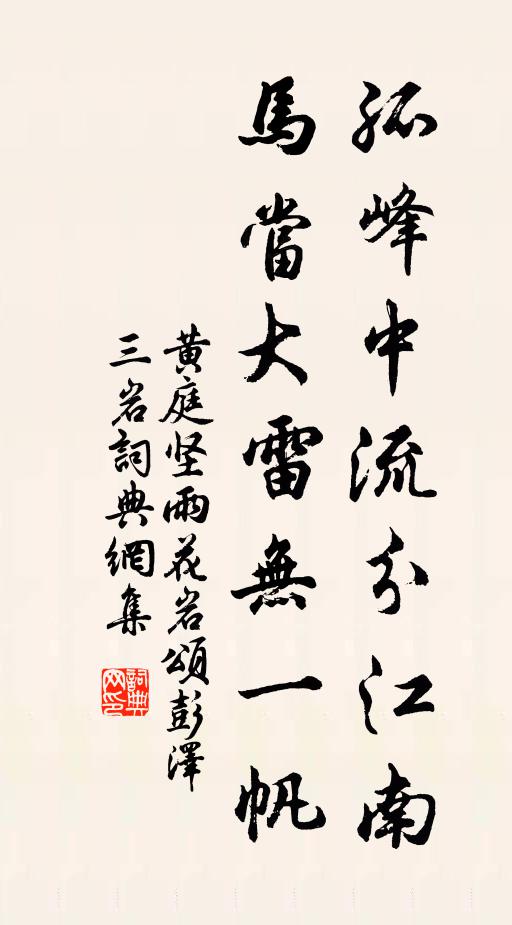 孤峰中流分江南
馬當大雷無一帆
黃庭坚雨花岩頌彭澤
三岩詞典網集
詞典网印